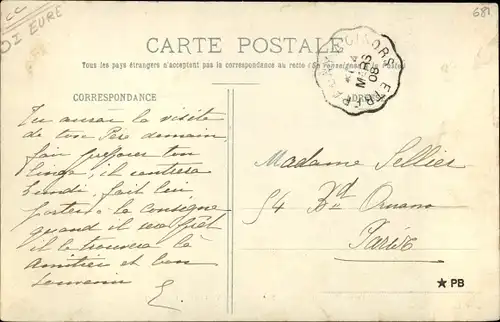 CC
OI EURE
681
CARTE POSTALE
Tous les pays étrangers n'acceptent pas la correspondance au recto (Se renseigner à la Poste)
GISORS
MARS
08
CORRESPONDANCE
Tu auras la visite
de ton Père demain
fais préparer ton
linge, il rentrera
Lundi, fait lui
porter à la consigne
quand il sera prêt
il le trouvera là
Amitiés et bon
souvenir
Madame Sellier
54 Bd Ornano
Paris
★ PB